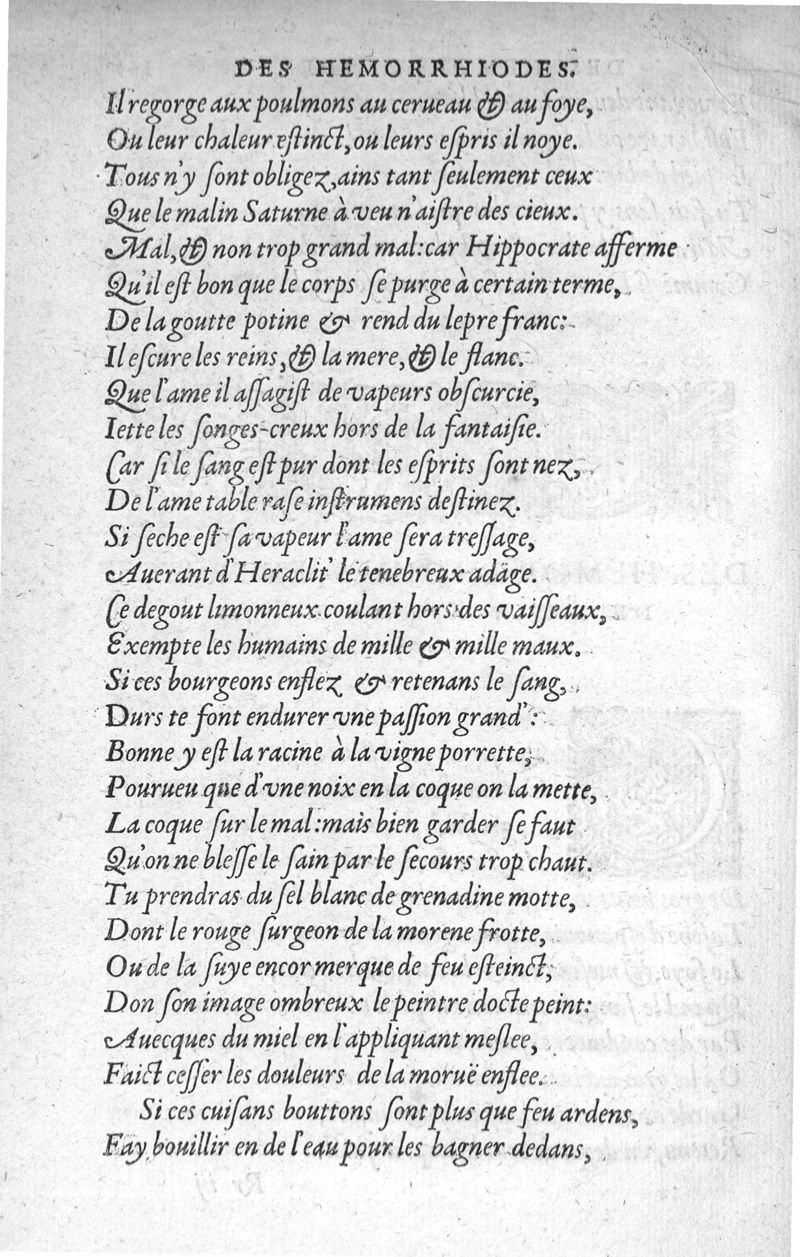 DES HEMORRHIODES.
Il regorge aux poulmons au cerueau & au foye,
Ou leur chaleur estinct, ou leurs espris il noye.
Tous n'y sont obligez, ains tant seulement ceux
Que le malin Saturne à veu n'aistre des cieux.
Mal, & non trop grand mal: car Hippocrate afferme
Qu'il est bon que le corps se purge à certain terme,
De la goutte potine & rend du lepre franc:
Il escure les reins, & la mere, & le flanc.
Que l'ame il assagist de vapeurs obscurcie,
Iette les songes-creux hors de la fantaisie.
Car si le sang est pur dont les esprits sont nez,
De l'ame table rase instrumens destinez.
Si seche est sa vapeur l'ame sera tressage,
Auerant d'Heraclit' le tenebreux adāge.
Ce degout limonneux coulant hors des vaisseaux,
Exempte les humains de mille & mille maux.
Si ces bourgeons enflez & retenans le sang,
Durs te font endurer vne passion grand':
Bonne y est la racine à la vigne porrette,
Pourueu que d'vne noix en la coque on la mette,
La coque sur le mal: mais bien garder se faut
Qu'on ne blesse le sain par le secours trop chaut.
Tu prendras du sel blanc de grenadine motte,
Dont le rouge surgeon de la morene frotte,
Ou de la suye encor merque de feu esteinct,
Don son image ombreux le peintre docte peint:
Auecques du miel en l'appliquant meslee,
Faict cesser les douleurs de la moruë enflee.
Si ces cuisans bouttons sont plus que feu ardens,
Fay bouillir en de l'eau pour les bagner dedans,